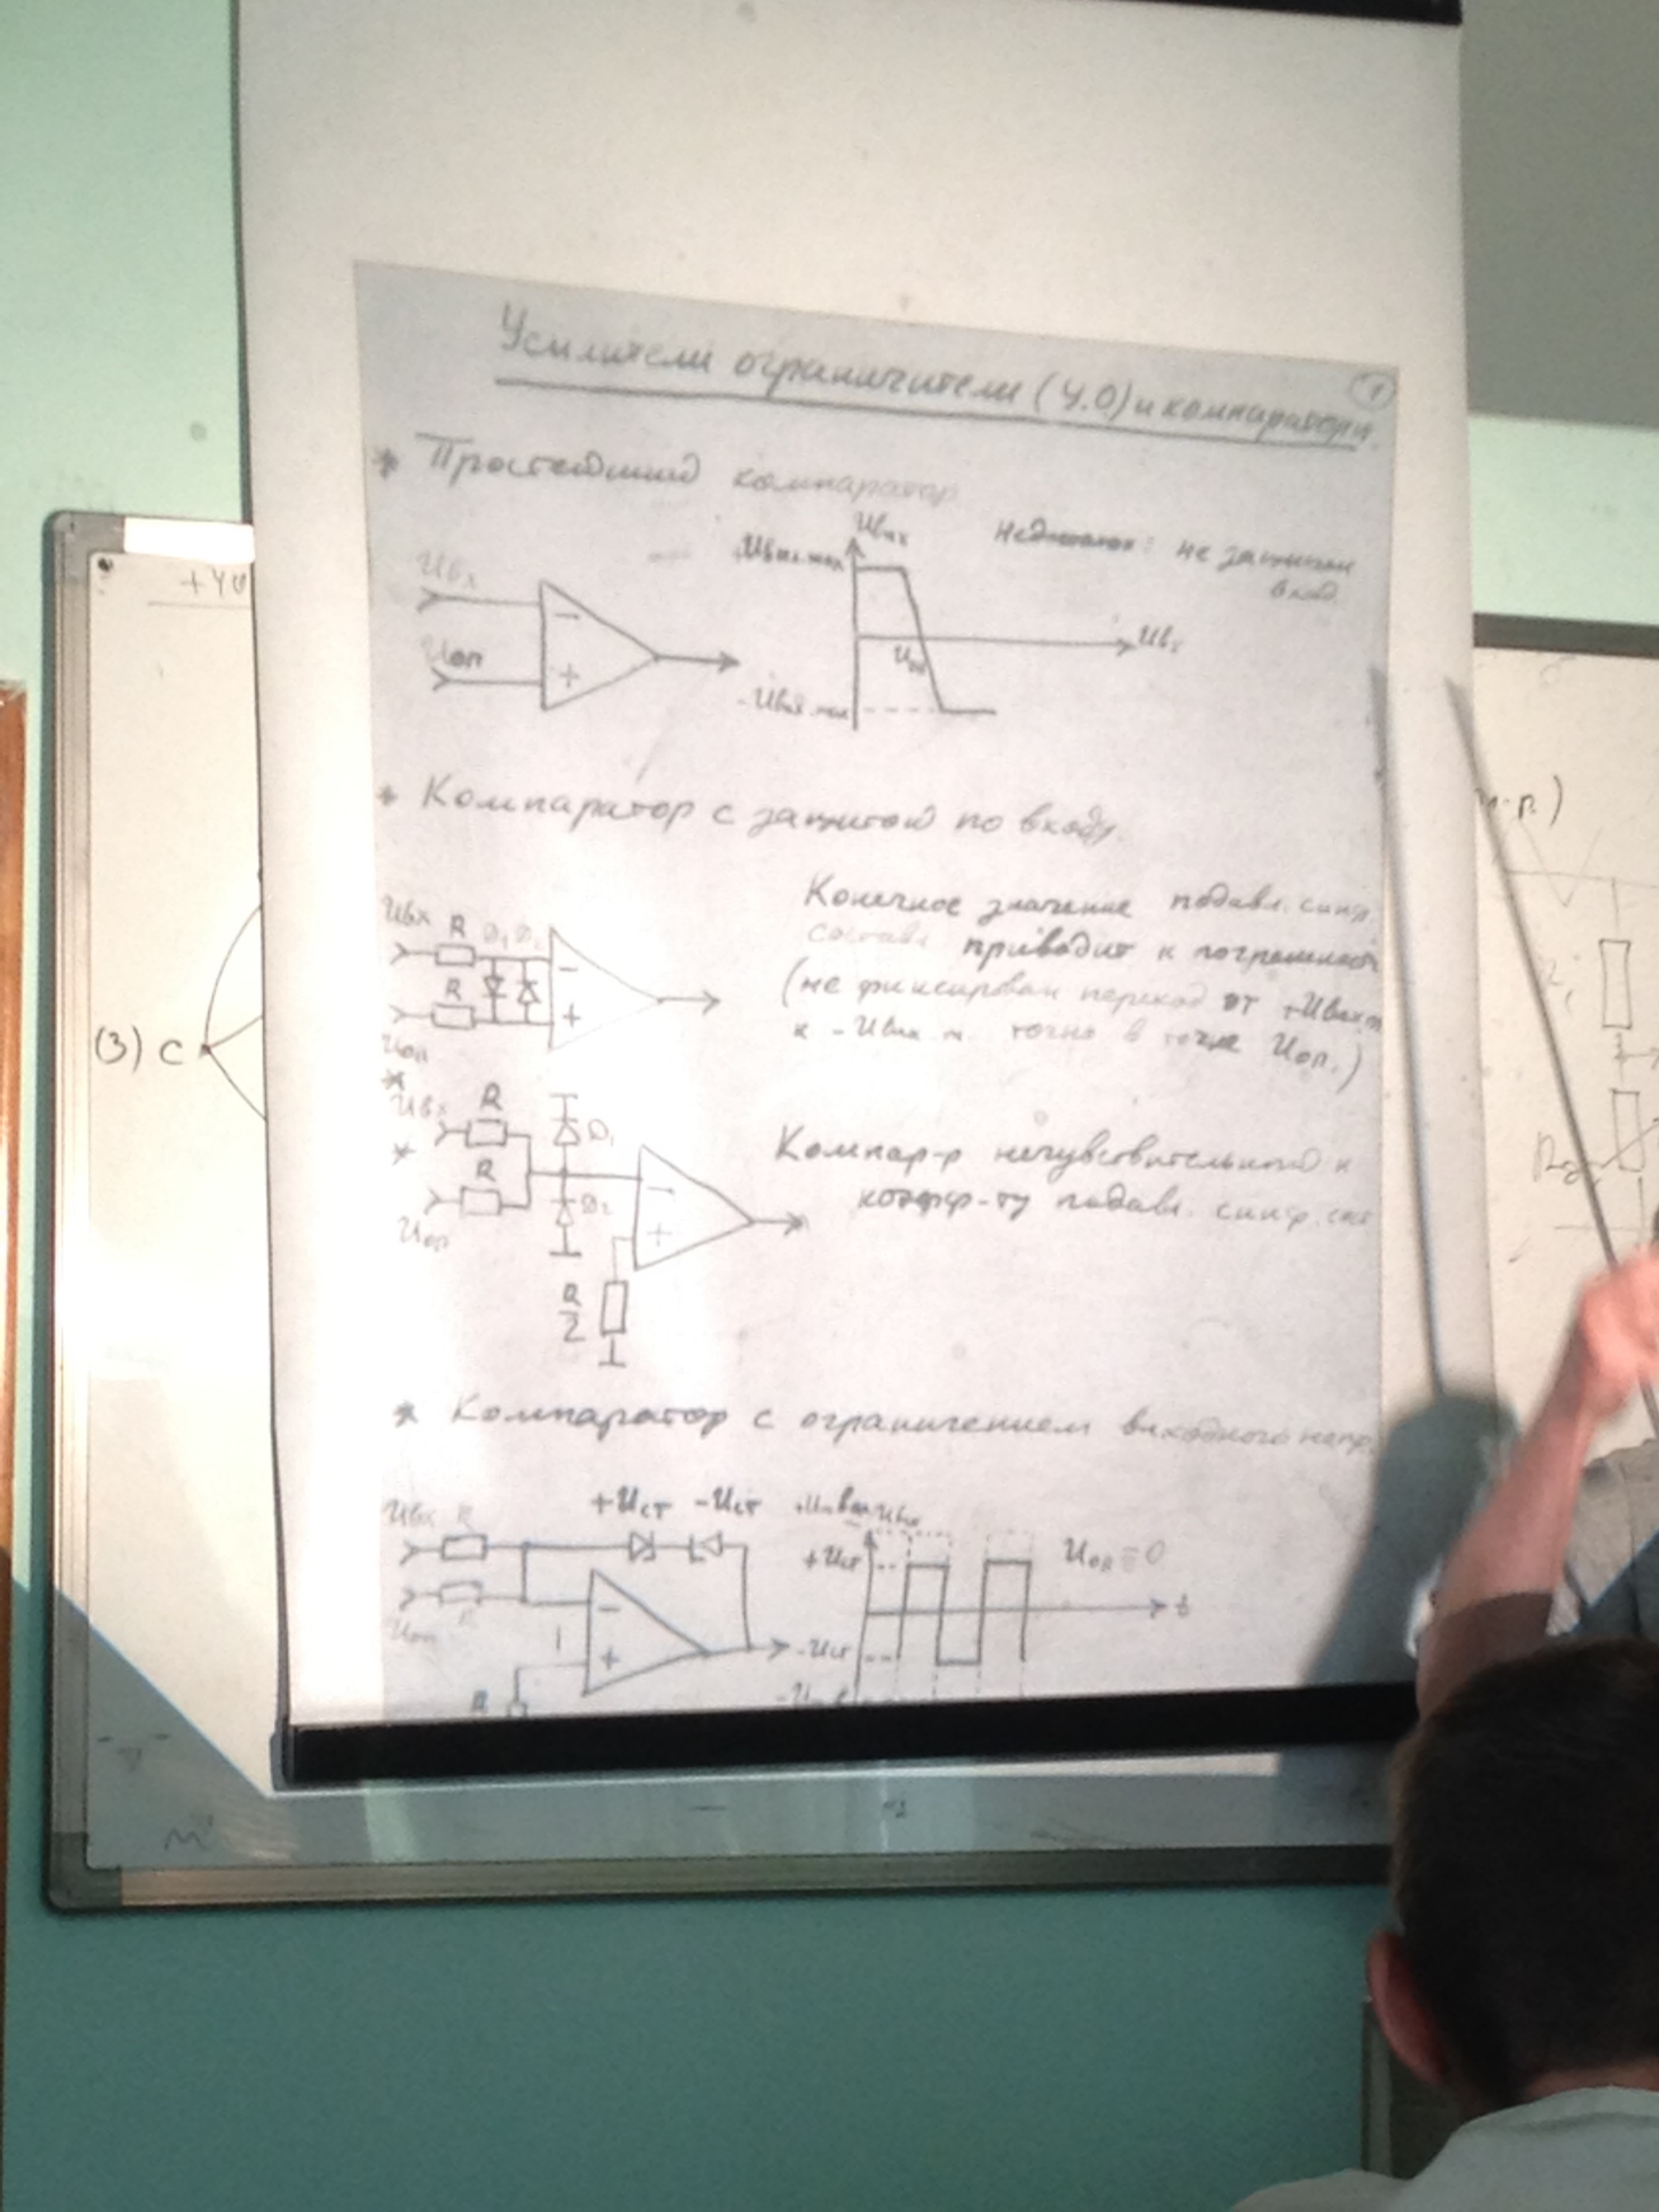 Усилители ограничители (У.О) и компараторы.
1
* Простейший компаратор
Uвх
Uоп
−
+
Uвых
+Uвых.max
Uвх
Uоп
-Uвых.max
Недостаток: не защищен
вход.
* Компаратор с защитой по входу.
Uвх R D1 D2
R
Uоп
−
+
Конечное значение подавл. синф.
составл. приводит к погрешности
(не фиксирован переход от +Uвых.m
к -Uвых.m. точно в точке Uоп.)
*
Uвх R
R
Uоп
D1
D2
−
+
R/2
Компар-р нечувствительный к
коэфф-ту подавл. синф. сост
* Компаратор с ограничением выходного напр.
Uвх R
Uоп R
+Uст -Uст
−
+
R
Uвых
+Uст
-Uст
Uоп=0
t
(3) C